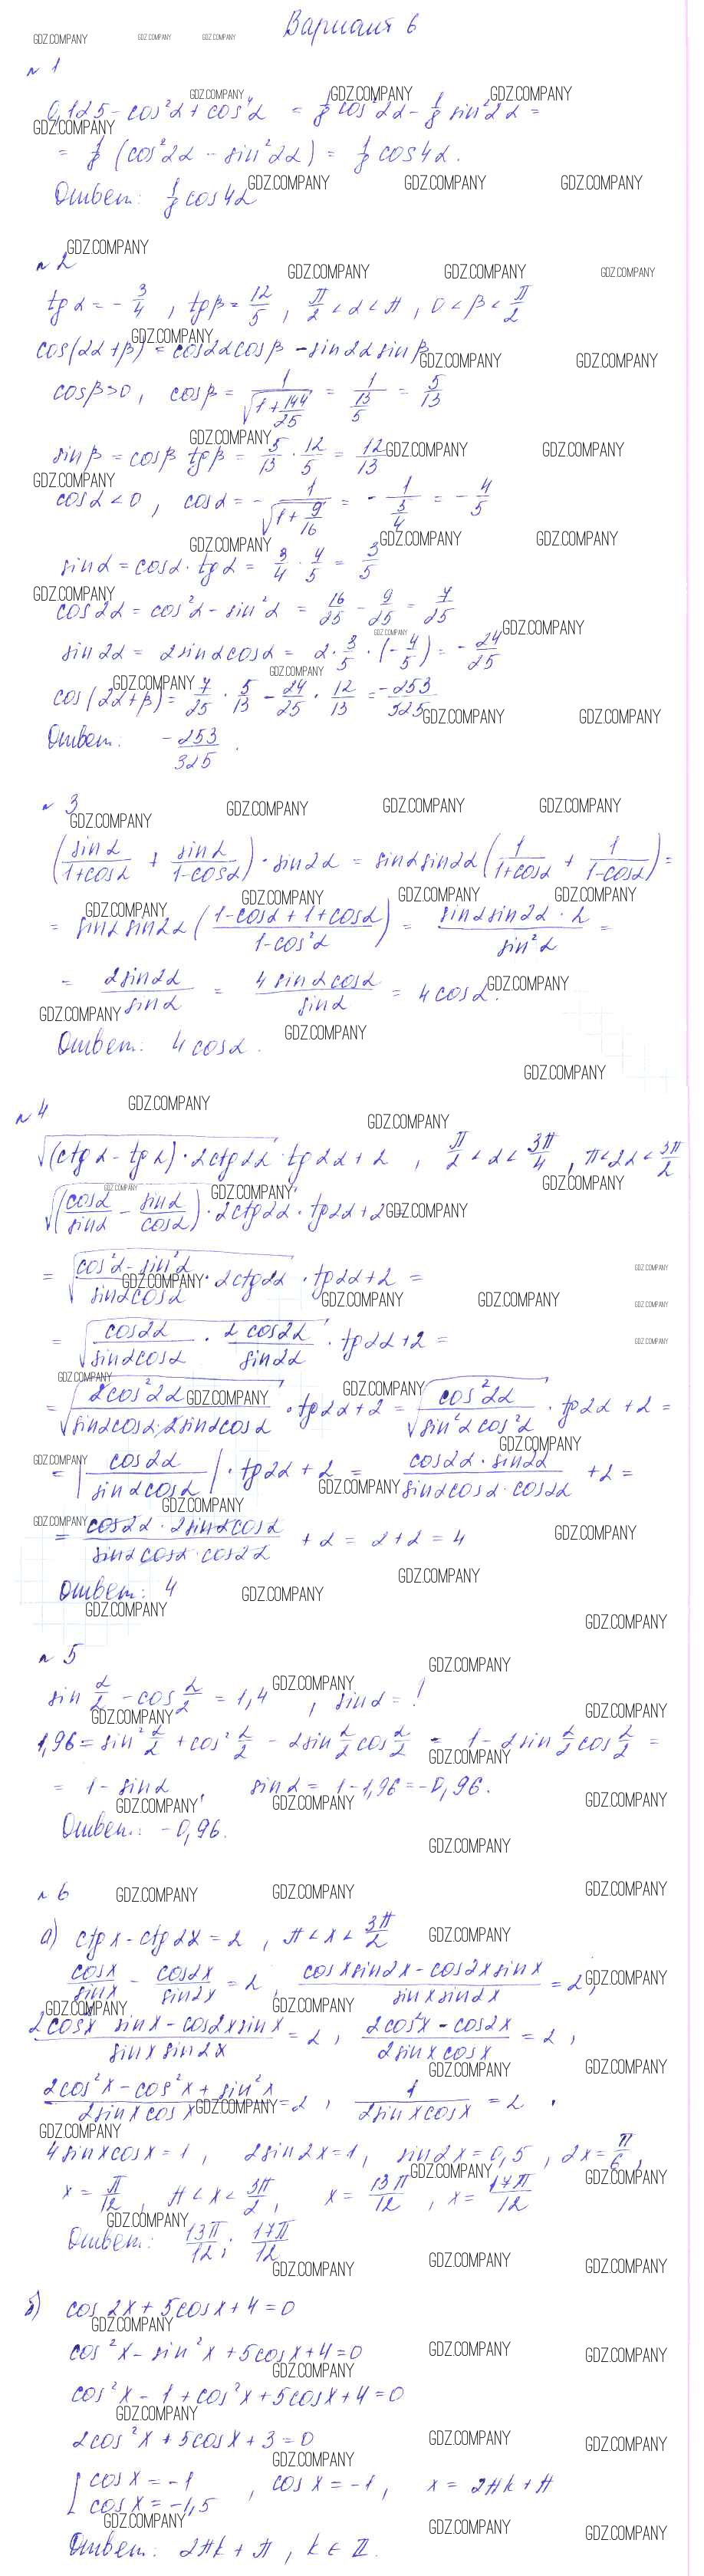 Вариант 6
№ 1
0,125 - cos²α + cos⁴α = 1/8 cos²2α - 1/8 sin²2α =
= 1/8 (cos²2α - sin²2α) = 1/8 cos4α.
Ответ: 1/8 cos4α
№ 2
tgα = - 3/4, tgβ = 12/5, π/2 < α < π, 0 < β < π/2
cos(2α+β) = cos2αcosβ - sin2αsinβ
cosβ>0, cosβ = 1/√(1+144/25) = 1/(13/5) = 5/13
sinβ = cosβ tgβ = 5/13 · 12/5 = 12/13
cosα<0, cosα = - 1/√(1+9/16) = - 1/(5/4) = - 4/5
sinα = cosα · tgα = 3/4 · 4/5 = 3/5
cos2α = cos²α - sin²α = 16/25 - 9/25 = 7/25
sin2α = 2sinαcosα = 2 · 3/5 · (-4/5) = - 24/25
cos(2α+β) = 7/25 · 5/13 - 24/25 · 12/13 = -253/325
Ответ: -253/325.
№ 3
(sinα/(1+cosα) + sinα/(1-cosα)) · sin2α = sinαsin2α (1/(1+cosα) + 1/(1-cosα)) =
= sinαsin2α ((1-cosα+1+cosα)/(1-cos²α)) = (sinαsin2α · 2)/sin²α =
= 2sin2α/sinα = 4sinαcosα/sinα = 4cosα.
Ответ: 4cosα.
№ 4
√((ctgα - tgα) · 2ctg2α) · tg2α + 2, π/2 < α < 3π/4, π < 2α < 3π/2
√((cosα/sinα - sinα/cosα) · 2ctg2α) · tg2α + 2 =
= √((cos²α - sin²α)/(sinαcosα) · 2ctg2α) · tg2α + 2 =
= √(cos2α/(sinαcosα) · 2cos2α/sin2α) · tg2α + 2 =
= √(2cos²2α/(sinαcosα·2sinαcosα)) · tg2α + 2 = √(cos²2α/(sin²αcos²α)) · tg2α + 2 =
= |cos2α/(sinαcosα)| · tg2α + 2 = (cos2α · sin2α)/(sinαcosα·cos2α) + 2 =
= (cos2α · 2sinαcosα)/(sinαcosα·cos2α) + 2 = 2+2 = 4
Ответ: 4
№ 5
sin α/2 - cos α/2 = 1,4, sinα = !
1,96 = sin² α/2 + cos² α/2 - 2sin α/2 cos α/2 = 1 - 2sin α/2 cos α/2 =
= 1 - sinα, sinα = 1 - 1,96 = -0,96.
Ответ: -0,96.
№ 6
а) ctgx - ctg2x = 2, π < x < 3π/2
cosx/sinx - cos2x/sin2x = 2, (cosxsin2x - cos2xsinx)/(sinxsin2x) = 2,
(2cos²x sinx - cos2xsinx)/(sinx sin2x) = 2, (2cos²x - cos2x)/(2sinxcosx) = 2,
(2cos²x - cos²x + sin²x)/(2sinxcosx) = 2, 1/(2sinxcosx) = 2.
4sinxcosx = 1, 2sin2x = 1, sin2x = 0,5, 2x = π/6,
x = π/12, π < x < 3π/2, x = 13π/12, x = 17π/12
Ответ: 13π/12; 17π/12
б) cos2x + 5cosx + 4 = 0
cos²x - sin²x + 5cosx + 4 = 0
cos²x - 1 + cos²x + 5cosx + 4 = 0
2cos²x + 5cosx + 3 = 0
[cosx = -1, cosx = -1, x = 2πk + π
cosx = -1,5
Ответ: 2πk + π, k ∈ Z.
GDZ.COMPANY